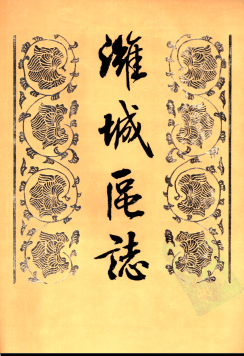 濰城區誌